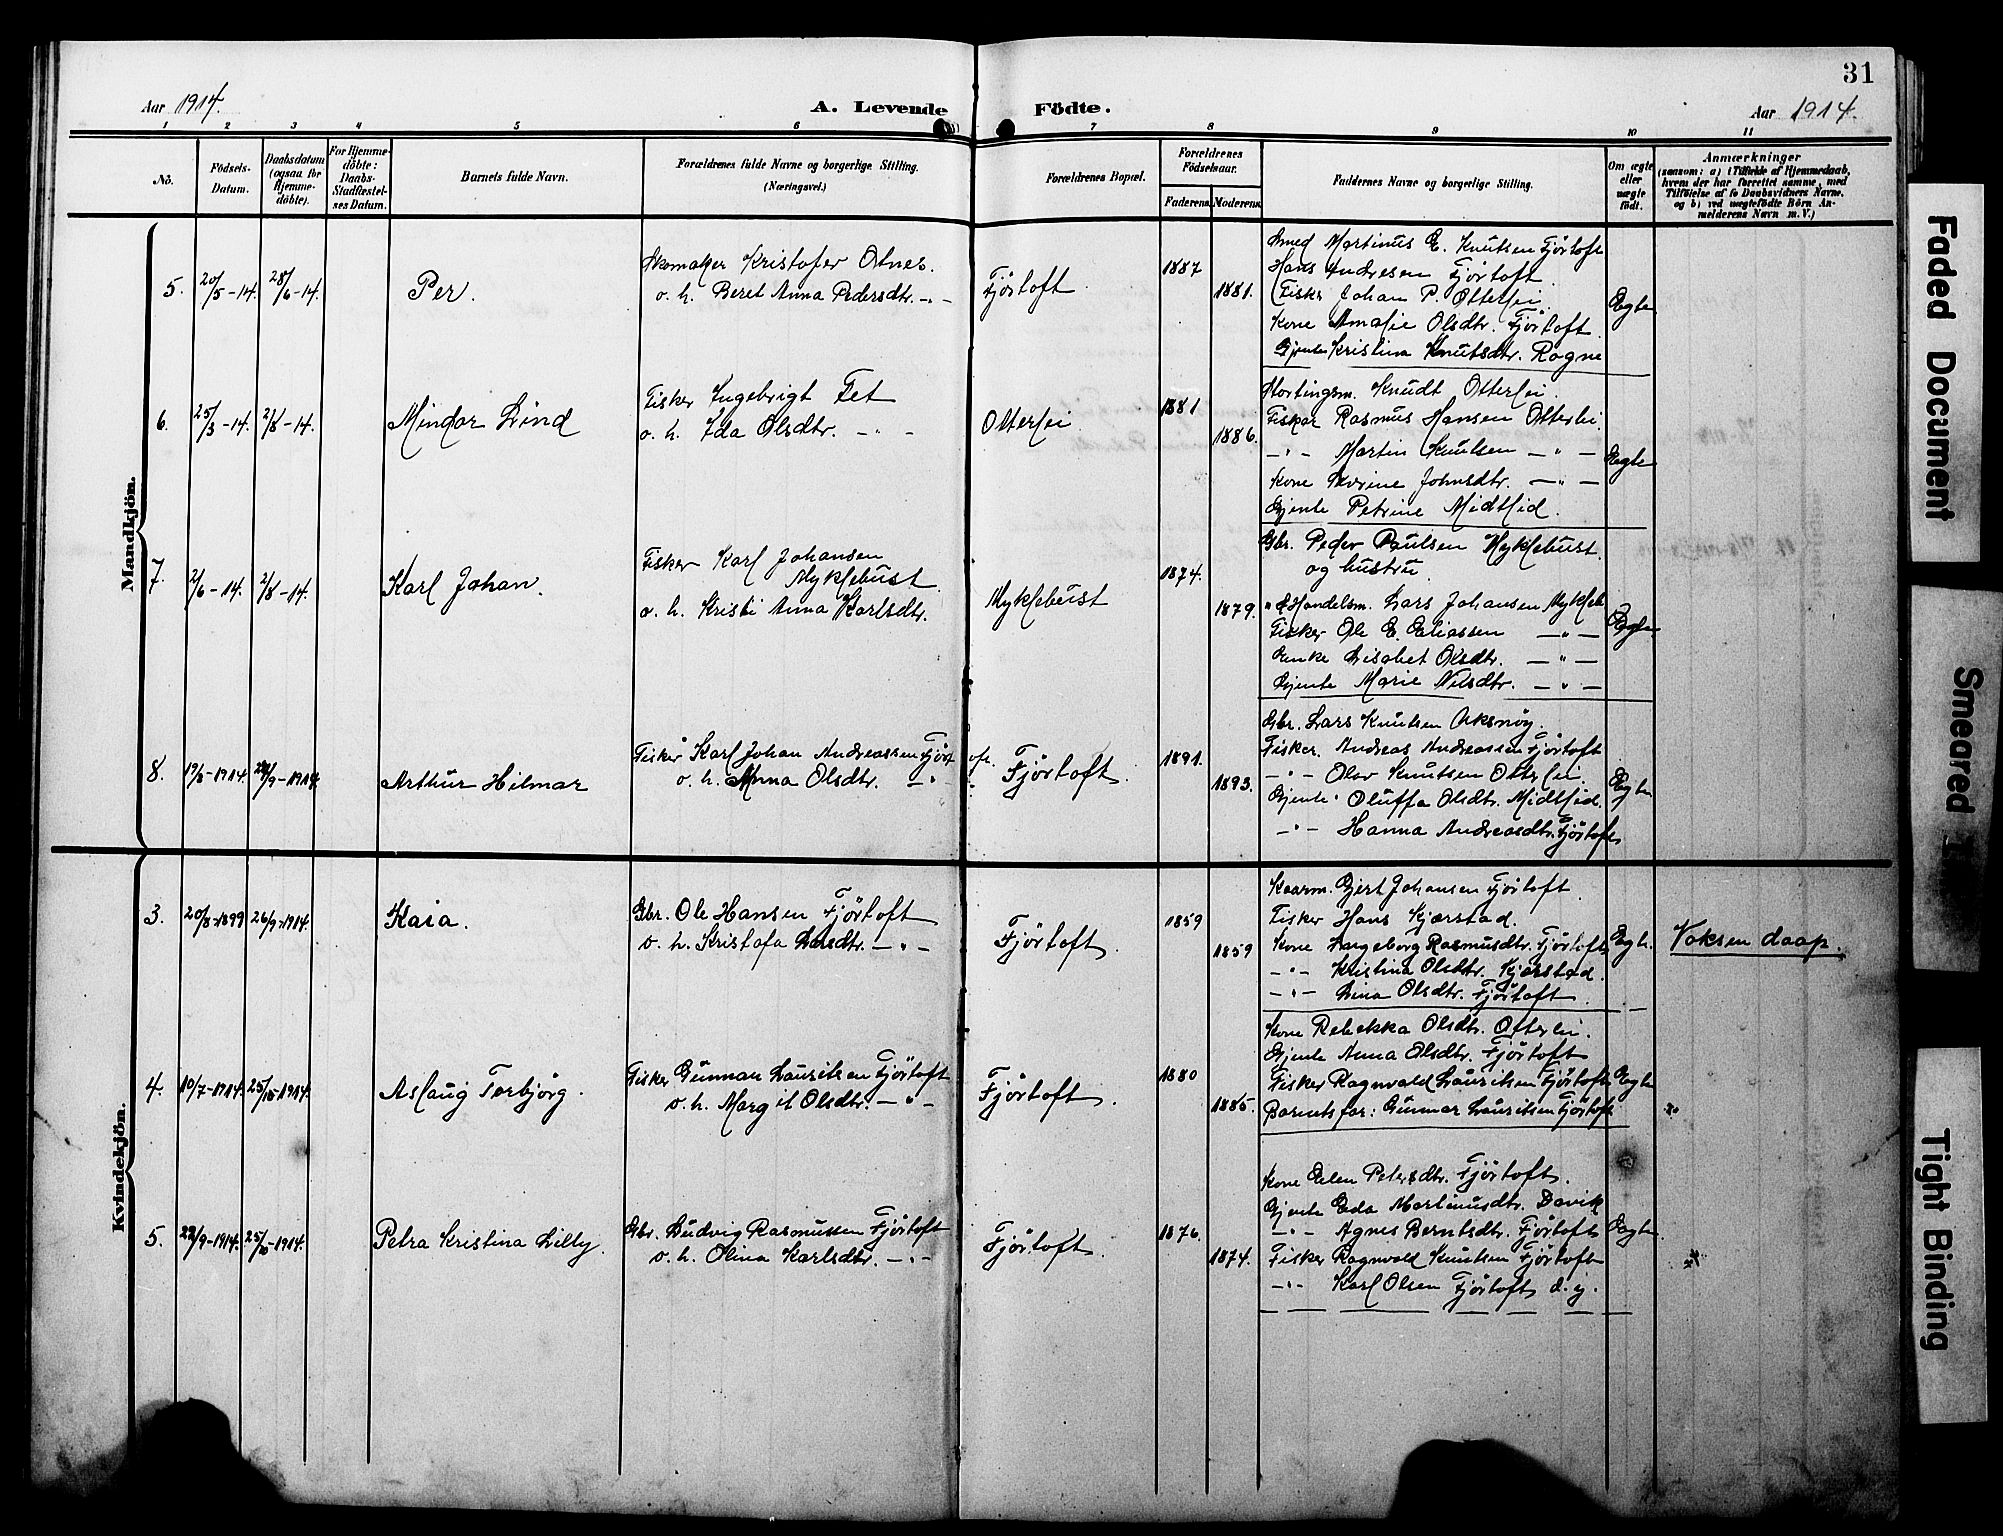 31
Aar 1914.
A. Levende Födte.
Aar 1914.
1 2 3 4 5 6 7 8 9 10 11
No.
Födsels-Datum.
Daabsdatum (ogsaa for Hjemmedöbte).
For Hjemmedöbte: Daabs-Stadfæstelses Datum.
Barnets fulde Navn.
Forældrenes fulde Navne og borgerlige Stilling. (Næringsvei.)
Forældrenes Bopæl.
Forældrenes Födselsaar.
Faderens. Moderens.
Faddernes Navne og borgerlige Stilling.
Om ægte eller uægte födt.
Anmærkninger
(saasom: a) i Tilfælde af Hjemmedaab, hvem der har forrettet samme, med Tilföielse af to Daabsvidners Navne, og b) ved uægtefödte Börn Anmelderens Navn m. V.)
Mandkjön.
5. 20/5-14. 28/6-14. Per.
Skomaker Kristofer Otnes.
o. h. Beret Anna Pedersdtr. -"-
Fjörtoft
1887
1881.
Smed Martinus E. Knutsen Fjörtoft
Hans Andresen Fjörtoft
Fisker Johan P. Otterlei
Kone Amalie Olsdtr. Fjörtoft
Gjente Kristina Knutsdtr. Rogne
Ægte
6. 25/5-14. 2/8-14. Mindor Lind
Fisker Ingebrigt Fet
o. h. Ida Olsdtr. -"-
Otterlei
1881
1886.
Stortingsm. Knudt Otterlei.
Fisker Rasmus Hansen Otterlei.
-"- Martin Knutsen -"-
Kone Johnsdtr. -"-
Gjente Petrine Midtlid.
Ægte
7. 2/6-14. 2/8-14. Karl Johan.
Fisker Karl Johansen
Myklebust
o. h. Kristi Anna Karlsdtr.
Myklebust
1874.
1879.
Gbr. Peder Paulsen Myklebust.
og hustru
Handelsm. Lars Johansen Mykleb.
Fisker Ole E. Eliassen -"-
Enke Lisabet Olsdtr. -"-
Gjente Marie Nilsdtr. -"-
Ægte
8. 19/8-1914. 1914. Arthur Hilmar
Fisker Karl Johan Andreassen Fjörtoft.
o. h. Anna Olsdtr. -"-
Fjörtoft.
1891.
1893.
Gbr. Lars Knutsen Uksnöy.
Fisker. Andreas Andreassen Fjörtoft
-"- Olav Knutsen Otterlei.
Gjente Oluffa Olsdtr. Midtlid.
-"- Hanna Andreasdtr. Fjörtoft
Ægte
Kvindekjön.
3. 20/8-1899 26/9-1914. Kaia.
Gbr. Ole Hansen Fjörtoft
o. h. Kristofa Larsdtr. -"-
Fjörtoft.
1859
1859
Kaarm. Gjert Johansen Fjörtoft.
Fisker Hans Kjærstad.
Kone Ingeborg Rasmusdtr. Fjörtoft
-"- Kristina Olsdtr. Kjærstad.
-"- Lina Olsdtr. Fjörtoft.
Ægte.
Voksen daap.
4. 10/7-1914. 25/10-1914. Aslaug Torbjörg.
Fisker Gunnar Lauritsen Fjörtoft
o. h. Margit Olsdtr. -"-
Fjörtoft.
1880
1885.
Kone Rebekka Olsdtr. Otterlei.
Gjente Anna Olsdtr. Fjörtoft
Fisker Ragnvald Lauritsen Fjörtoft
Barnets far: Gunnar Lauritsen Fjörtoft
Ægte
5. 22/9-1914. 25/10-1914. Petra Kristina Lilly.
Gbr. Ludvig Rasmussen Fjörtoft
o. h. Olina Karlsdtr. -"-
Fjörtoft.
1876
1874.
Kone Elen Petersdtr. Fjörtoft.
Gjente Eda Martinusdtr. Davik
-"- Agnes Berntsdtr. Fjörtoft
Fisker Ragnvald Knutsen Fjörtoft
-"- Karl Olsen Fjörtoft d. y.
Ægte
Faded Document
Smeared
Tight Binding